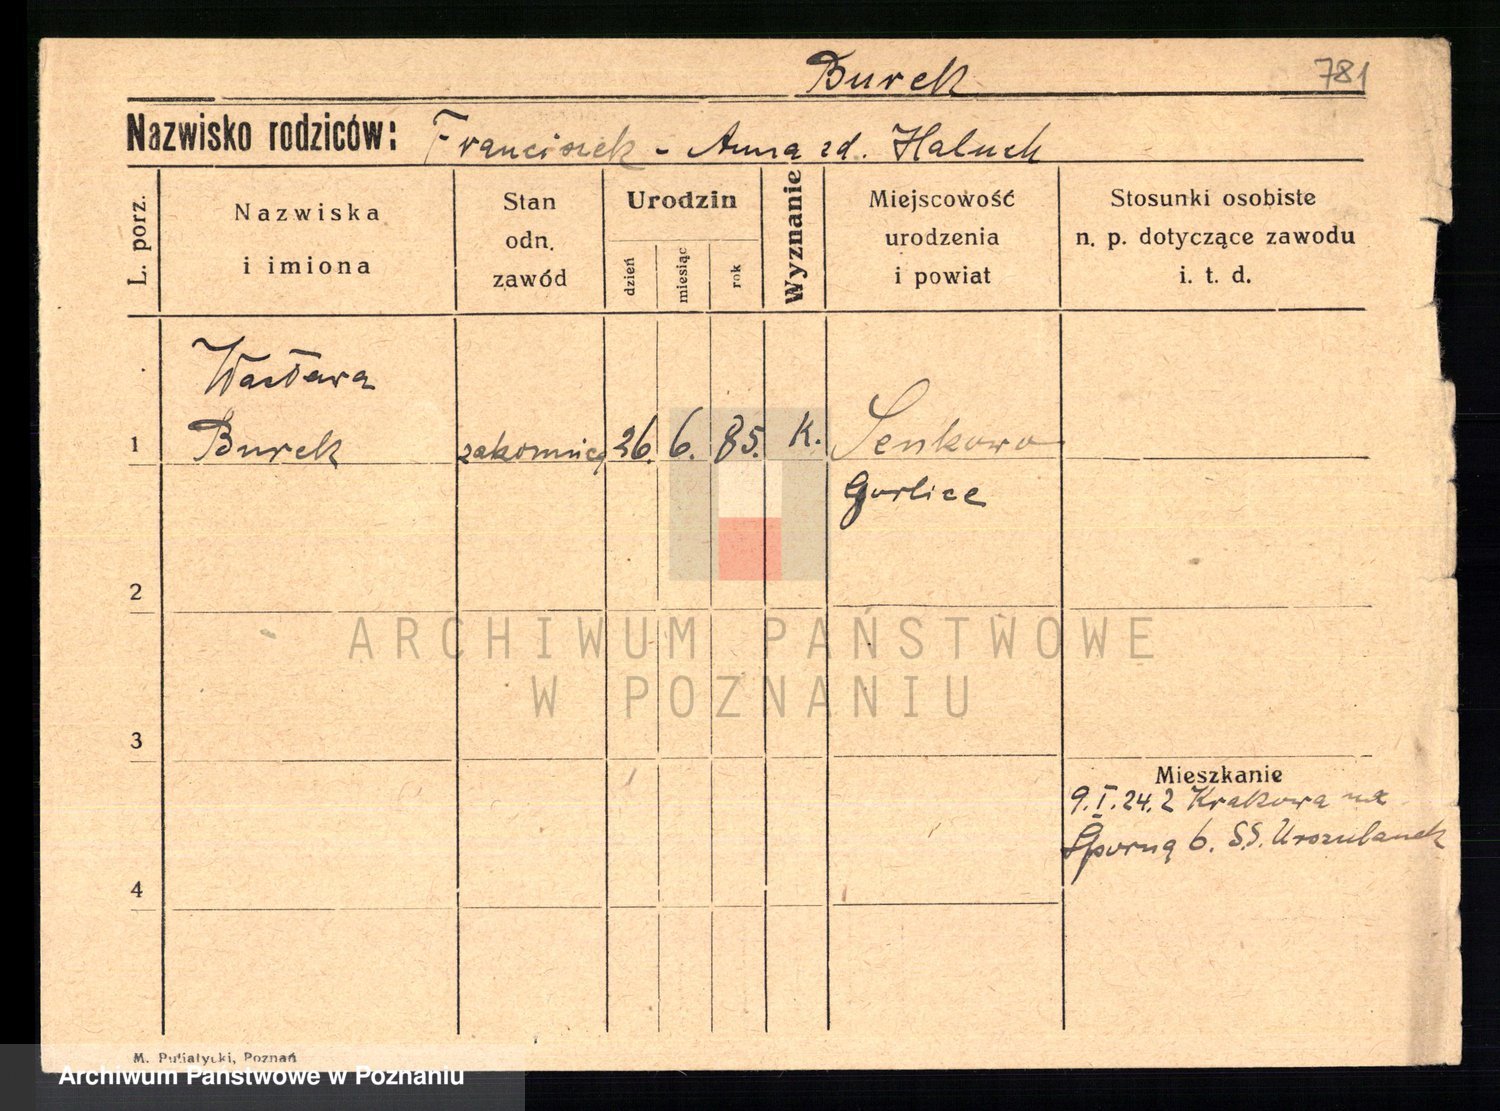 Burek
781
Nazwisko rodziców: Franciszek - Anna zd. Haluch
L. porz.
Nazwiska
i imiona
Stan
odn.
zawód
Urodzin
dzień
miesiąc
rok
Wyznanie
Miejscowość
urodzenia
i powiat
Stosunki osobiste
n. p. dotyczące zawodu
i. t. d.
Wacława
1 Burek zakonnica 26. 6. 85. K. Senkowo
Gorlice
2
ARCHIWUM PAŃSTWOWE
W POZNANIU
3
Mieszkanie
9.I.24. z Krakowa na
Sporną 6. S.S. Urszulanek
4
M. Putiatycki, Poznań
Archiwum Państwowe w Poznaniu